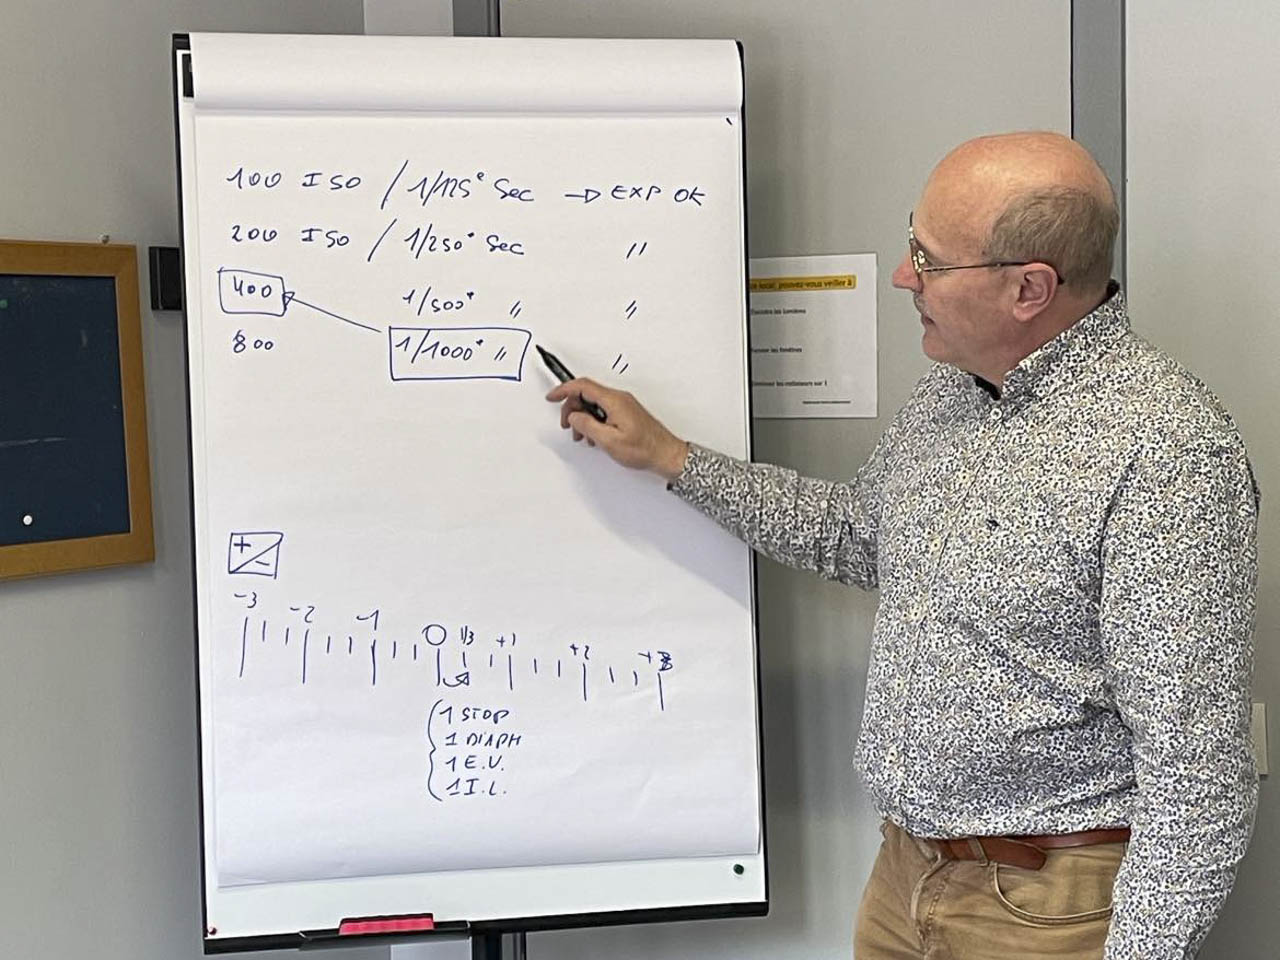 100 ISO / 1/125e Sec → EXP OK
200 ISO / 1/250e Sec "
400 1/500e " "
800 1/1000e " "
+/-
-3 -2 -1 0 1/3 +1 +2 +3
1 STOP
1 DIAPH
1 E.V.
1 I.L.
local, pouvez-vous veiller à
les fenêtres
les radiateurs sur 1